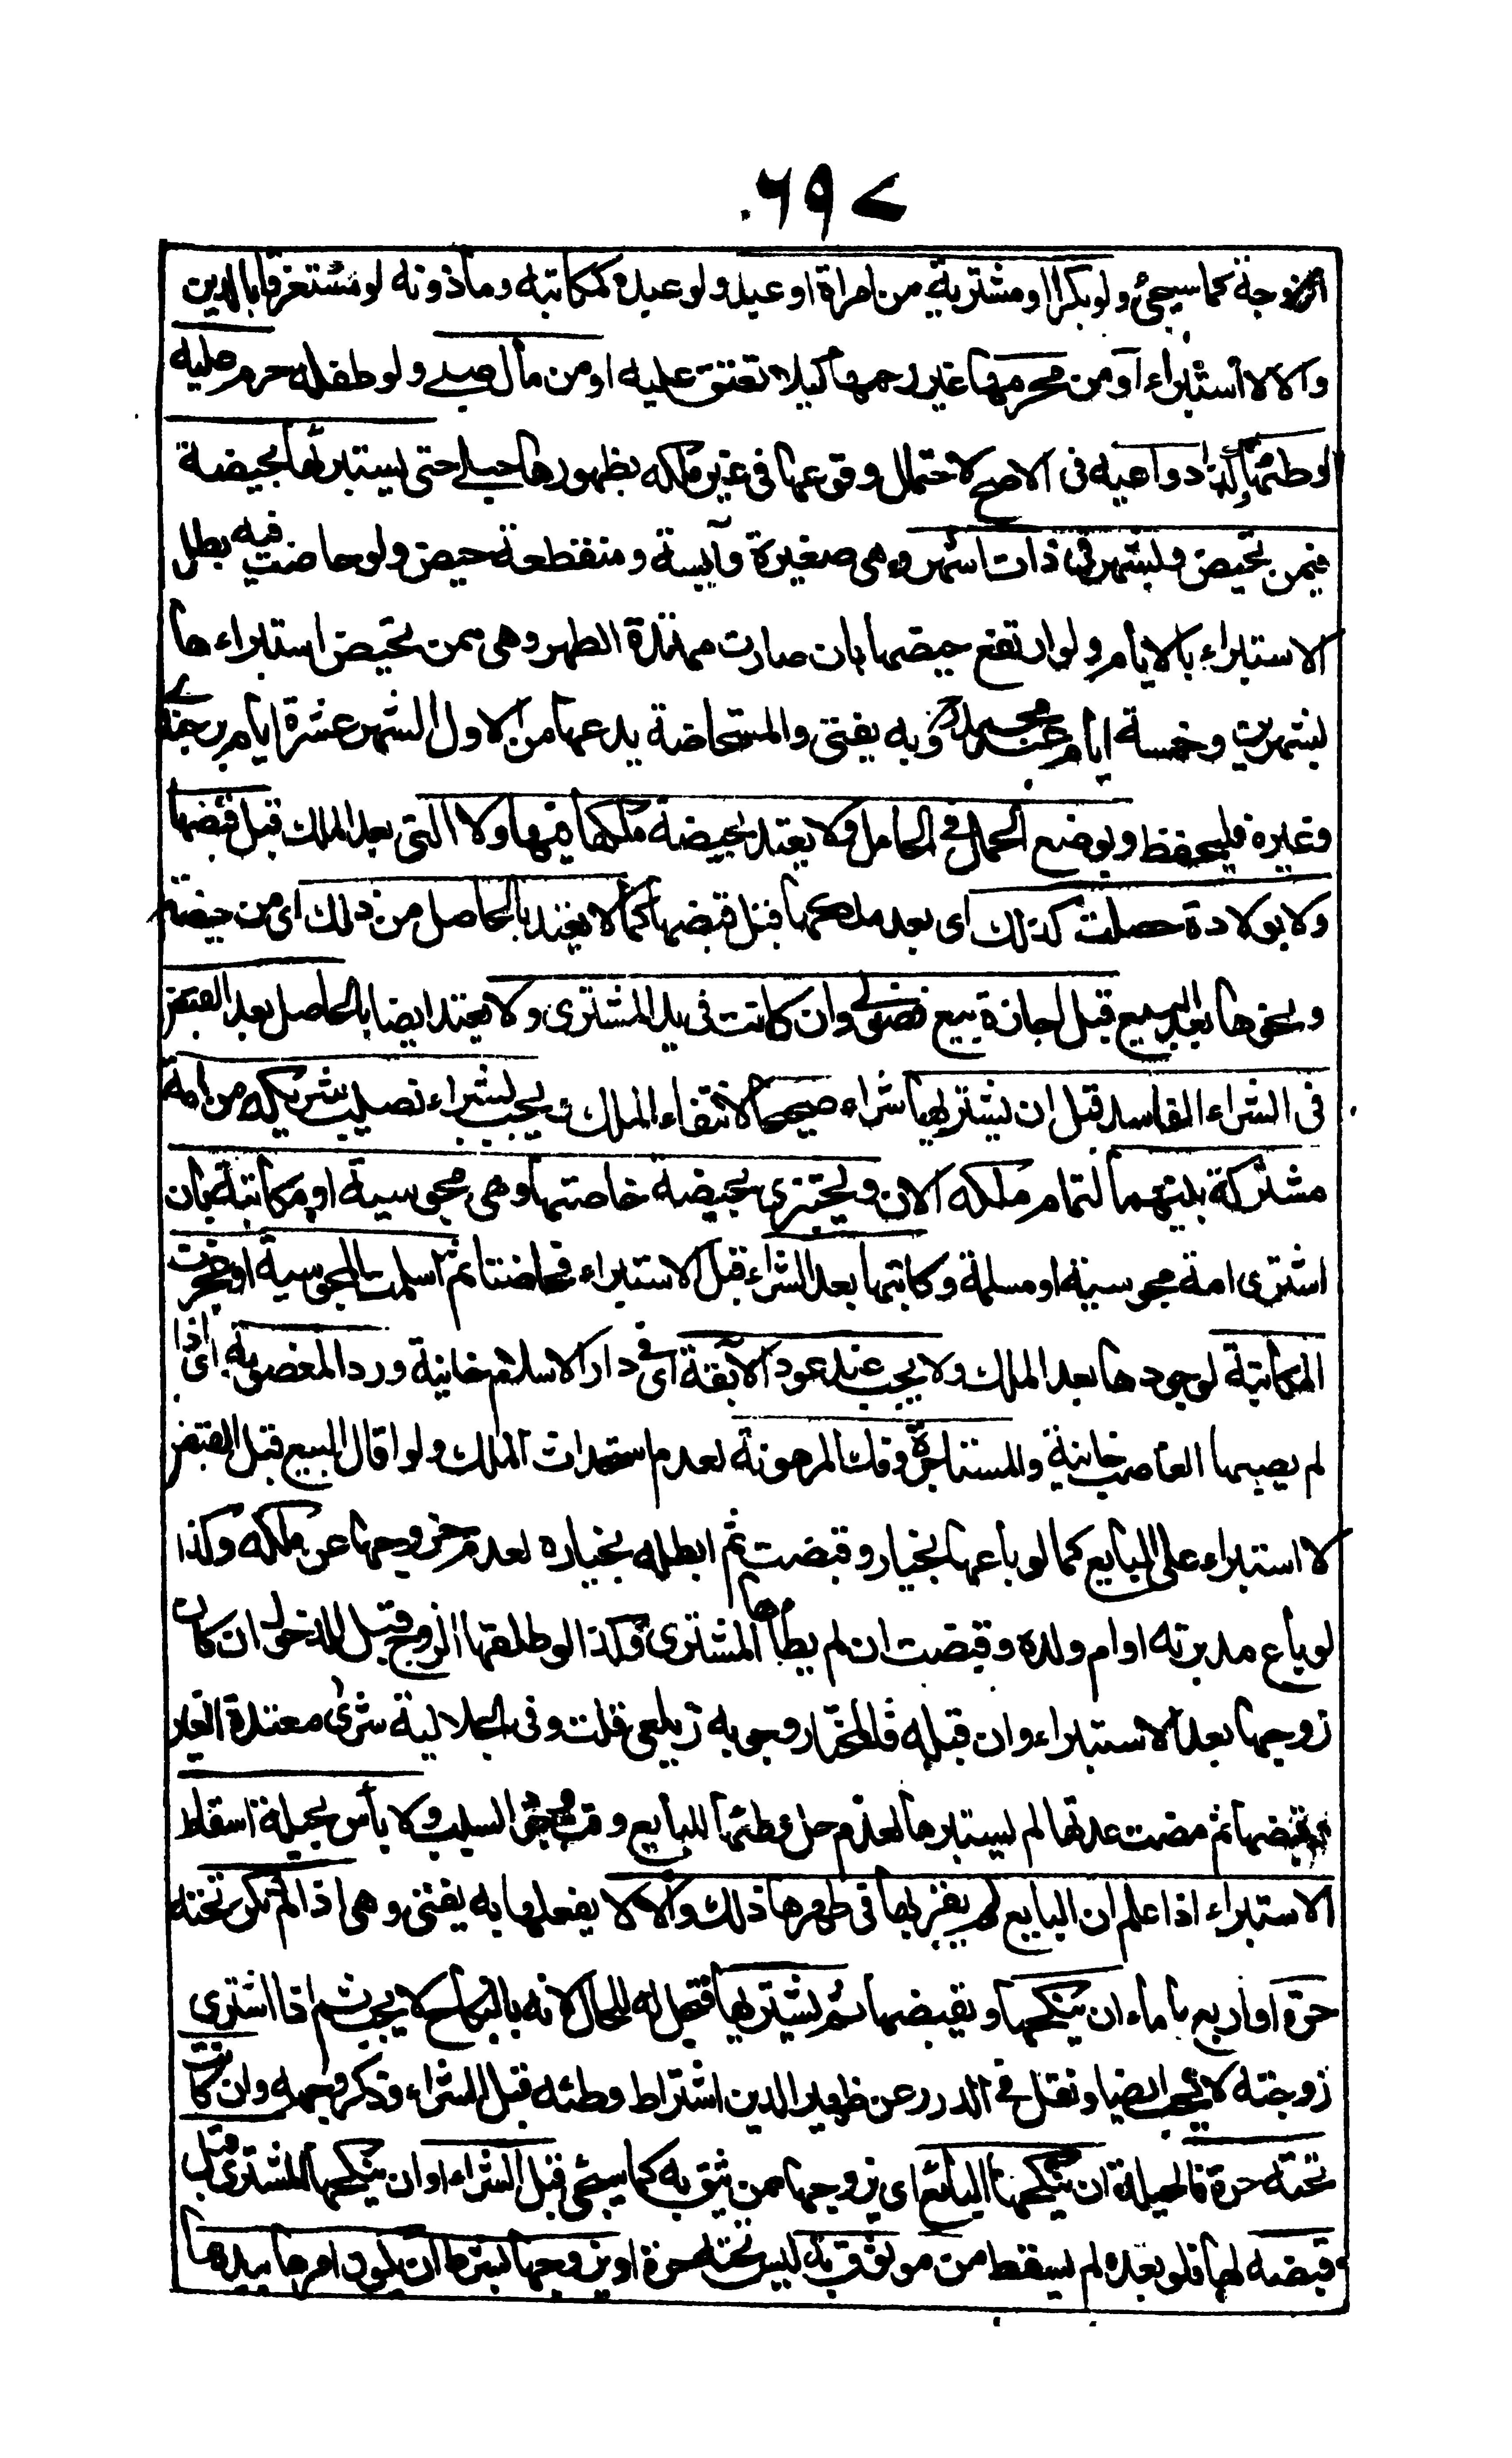 ٦٩٧
الزوجة كما سيجئ ولو بكرا او مشترية من امراة او عبد ولو عبده كمكاتبه وماذونه لو مستغرقا بالدين
والا لا استبراء او من محرمها غير رحمها كيلا تعتق عليه او من مال صبي ولو طفله حرم عليه
وطئها وكذا دواعيه فى الاصح لاحتمال وقوعها فى غير ملكه بظهورها حبلى حتى يستبرئها بحيضة
فيمن تحيض وبشهر فى ذات اشهر وهى صغيرة وآيسة ومنقطعة حيض ولو حاضت فيه بطل
الاستبراء بالايام ولو ارتفع حيضها بان صارت ممتدة الطهر وهى ممن تحيض استبراءها
بشهرين وخمسة ايام عند محمد وبه يفتى والمستحاضة يدعها من الاول الشهر عشرة ايام برجندي
وغيره فليحفظ وبوضع الحمل فى الحامل ولا يعتد بحيضة ملكها فيها ولا التى بعد الملك قبل قبضها
ولا بولادة حصلت كذلك اى بعد ملكها قبل قبضها كما لا يعتد بالحاصل من ذلك اى من حيضة
ونحوها بعد البيع قبل اجازة بيع فضولى وان كانت فى يد المشترى ولا يعتد ايضا بالحاصل بعد القبض
فى الشراء الفاسد قبل ان يشتريها شراء صحيحا لانتفاء الملك ويجب بشراء نصيب شريكه من امة
مشتركة بينهما لتمام ملكه الان ويجتزى بحيضة حاضتها وهى مجوسية او مكاتبة بان
اشترى امة مجوسية او مسلمة وكاتبها بعد الشراء قبل الاستبراء فحاضتا ثم اسلمت المجوسية او عجزت
المكاتبة لوجودها بعد الملك ولا يجب عند عود الآبقة اى فى دار الاسلام خانية ورد المغصوبة اى اذا
لم يصبها الغاصب خانية والمستاجرة وفك المرهونة لعدم استحداث الملك ولو اقال البيع قبل القبض
لا استبراء على البايع كما لو باعها بخيار وقبضت ثم ابطله بخياره لعدم خروجها عن ملكه وكذا
لو باع مدبرته او ام ولده وقبضت ان لم يطأها المشترى وكذا لو طلقها الزوج قبل الدخول ان كان
زوجها بعد الاستبراء وان قبله فالمختار وجوبه زيلعى قلت وفى الجلالية شرى معتدة الغير
وقبضها ثم مضت عدتها لم يستبرها لعدم حل وطئها للبايع وقت وجود السبب ولا بأس بحيلة اسقاط
الاستبراء اذا علم ان البايع لم يقربها فى طهرها ذلك والا لا يفعلها به يفتى وهى اذا لم تكن تحته
حرة او اربع باماء ان ينكحها ويقبضها ثم يشتريها فتحل له للحال لانه بالنكاح لا يجب ثم اذا اشترى
زوجته لا يجب ايضا ونقل فى الدرر عن ظهير الدين اشتراط وطئه قبل الشراء وذكر وجهه وان كانت
تحته حرة فالحيلة ان ينكحها البائع اى يزوجها ممن يثق به كما سيجى قبل الشراء او ان ينكحها المشترى قبل
قبضه لها فلو بعده لم يسقط من موثوق به ليس تحته حرة او يزوجها بشرط ان يكون امرها بيدها